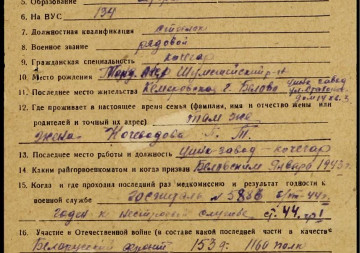 5. Образование
6. На ВУС 134
7. Должностная квалификация
8. Военное звание рядовой
9. Гражданская специальность кочегар
10. Место рождения Морд. АССР
11. Последнее место жительства Кемеровская г. Белово
цинк завод
12. Где проживает в настоящее время семья (фамилия, имя и отчество жены или
родителей и точный их адрес) там же
жена
13. Последнее место работы и должность цинк-завод - кочегар
14. Каким райгорвоенкоматом и когда призван Беловским января 1943 г.
15. Когда и где проходил последний раз медкомиссию и результат годности к
военной службе госпиталь
годен к строевой службе
16. Участие в Отечественной войне (в составе какой последней части и в качестве
Белорусский фронт 153 д. 1160 полк